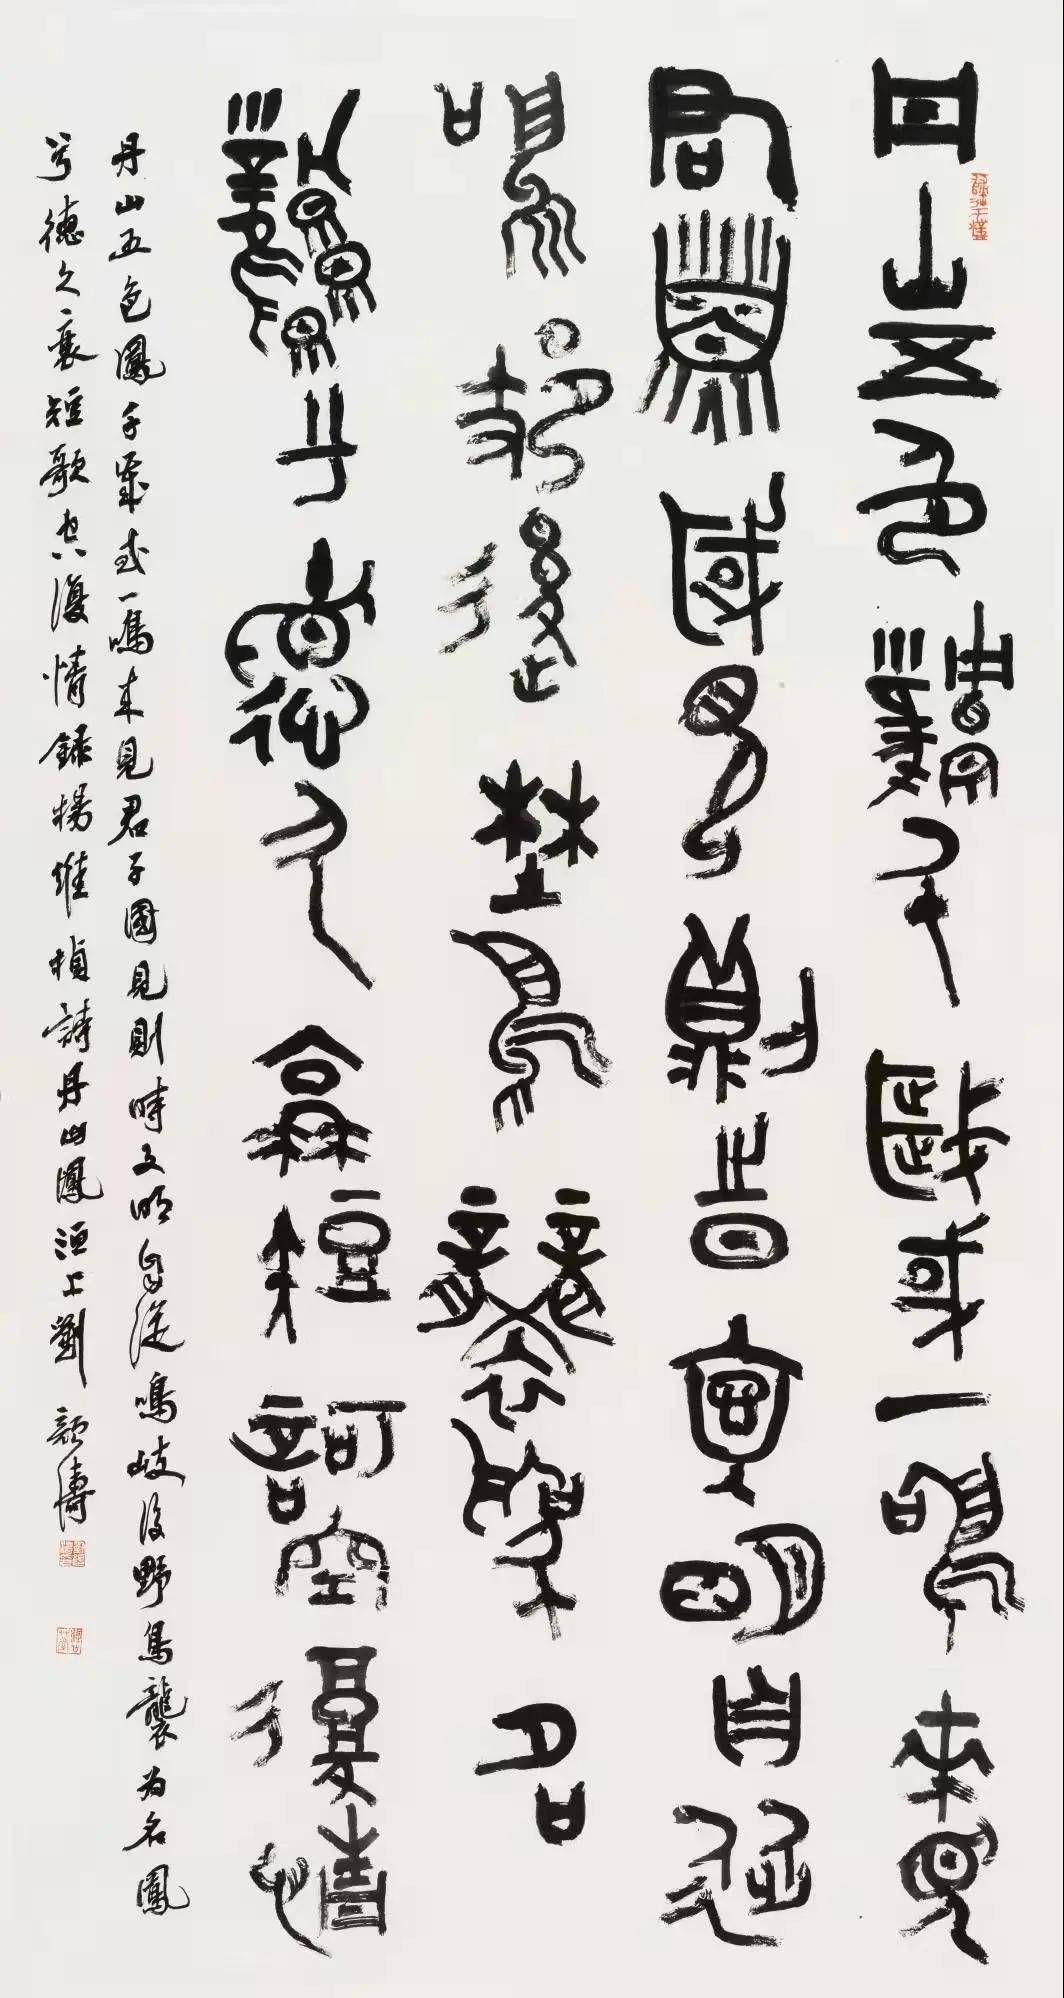 丹山五色鳳千歲或一鳴來見
君子國見則時文明自從
鳴岐後野鳥襲為名
鳳兮德之衰短歌空復情
丹山五色鳳千歲或一鳴来見君子國見則時文明自從鳴岐後野鳥襲为名鳳
兮德之衰短歌空復情錄楊維楨詩丹山鳳洹上劉顏濤